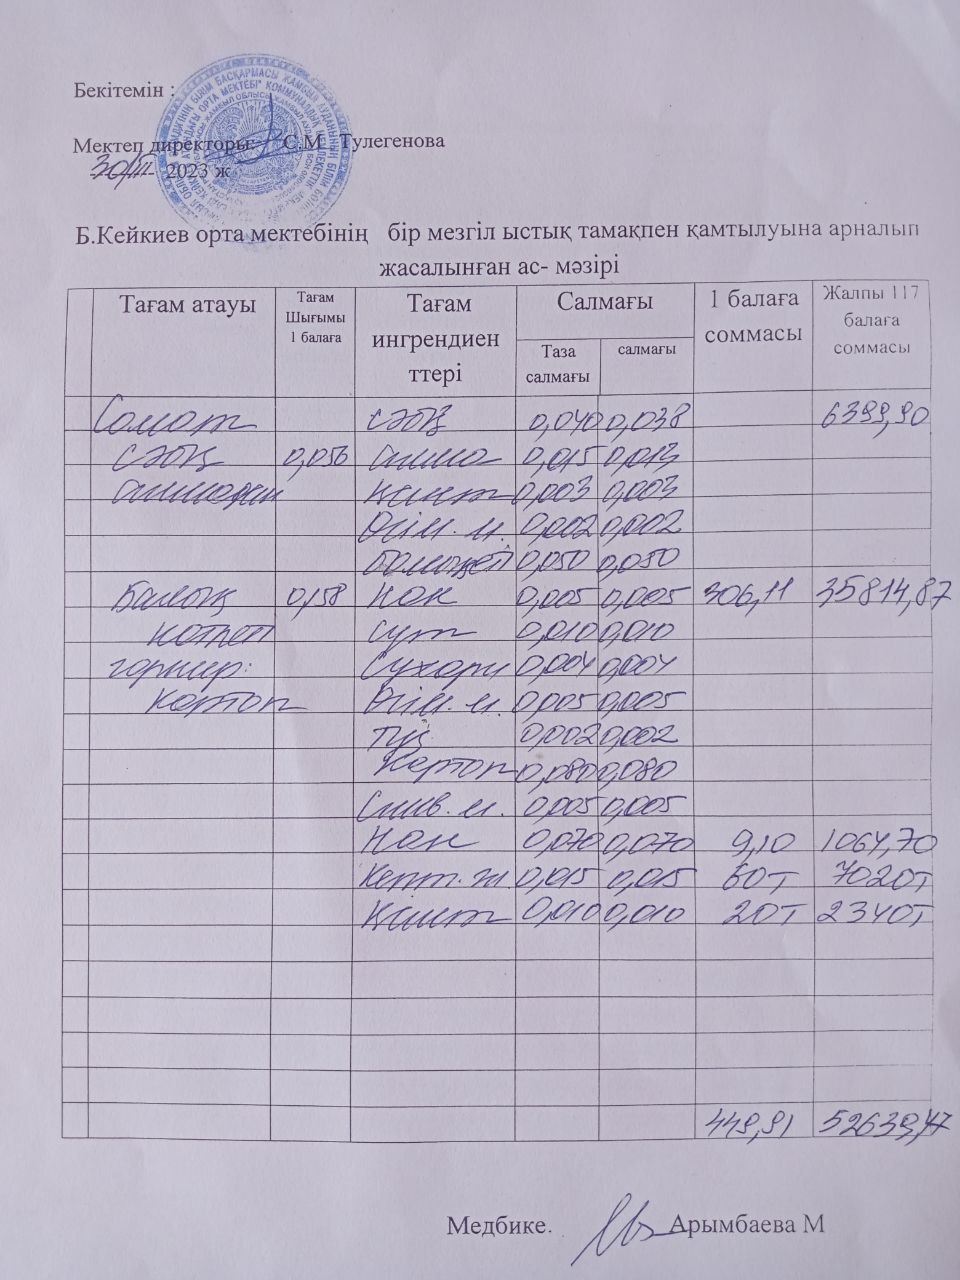 Бекітемін :
Мектеп директоры: С.М Тулегенова
30/ІІІ 2023 ж
Б.Кейкиев орта мектебінің бір мезгіл ыстық тамақпен қамтылуына арналып
жасалынған ас- мәзірі
Тағам атауы Тағам Шығымы 1 балаға Тағам ингрендиен ттері Салмағы Таза салмағы салмағы 1 балаға соммасы Жалпы 117 балаға соммасы
Сәбіз 0,040 0,038 6399,90
сәбіз 0,056 алма 0,015 0,013
алмадан қант 0,003 0,003
Өсім. м. 0,002 0,002
0,050 0,050
Балық 0,158 Нан 0,005 0,005 306,11 35814,87
котлет сүт 0,010 0,010
гарнир: Сухари 0,004 0,004
Картоп Өсім. м. 0,005 0,005
тұз 0,002 0,002
Картоп 0,080 0,080
Слив. м. 0,005 0,005
Нан 0,070 0,070 9,10 1064,70
Кепт. ж 0,015 0,015 60т 7020т
Қант 0,010 0,010 20т 2340т
449,91 52639,47
Медбике. Арымбаева М